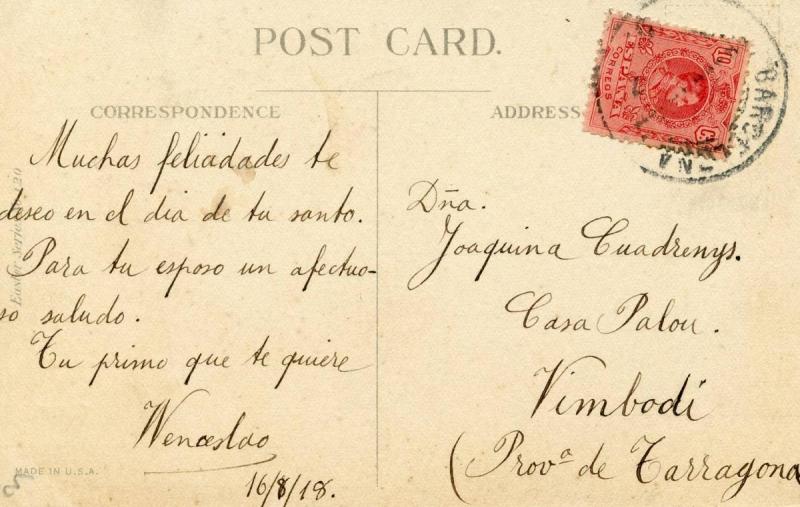 POST CARD.
CORRESPONDENCE
ADDRESS
10
CORREOS
ESPAÑA
Cs
BARCELONA
Muchas felicidades te
deseo en el dia de tu santo.
Para tu esposo un afectuo-
so saludo.
Tu primo que te quiere
Wenceslao
16/8/18.
Dña.
Joaquina Cuadrenys.
Casa Palou.
Vimbodí
(Provª de Tarragona
Easter Series No. 420
MADE IN U.S.A.